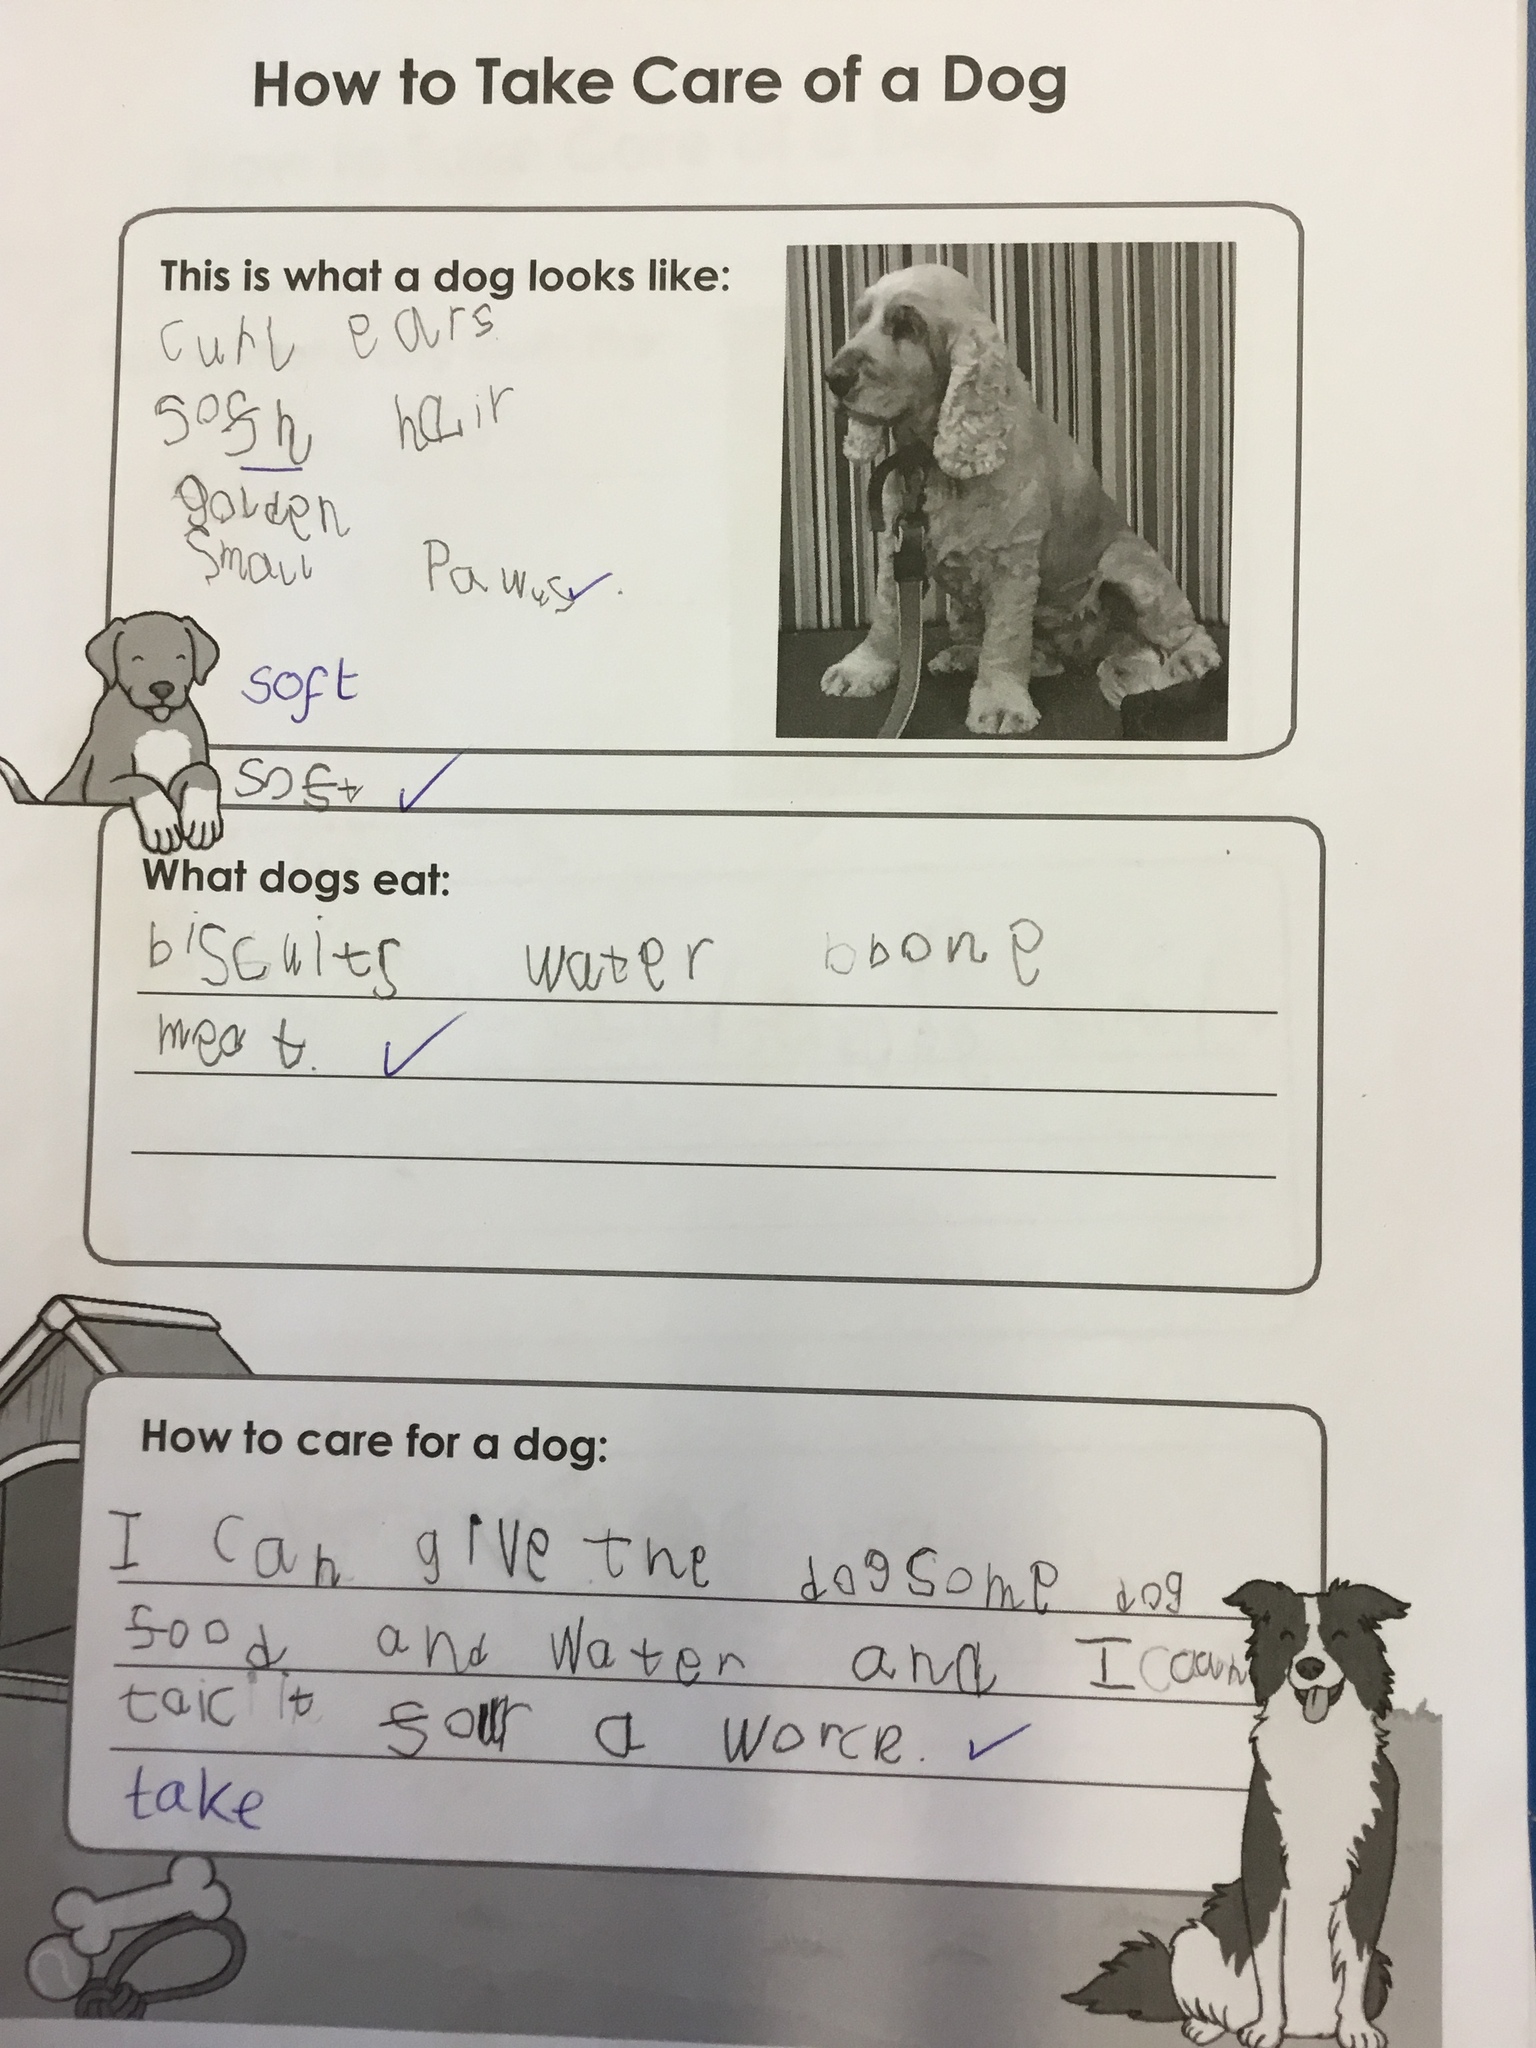 How to Take Care of a Dog
This is what a dog looks like:
curl ears
sofh hair
golden
small Paws.
soft
soft
What dogs eat:
biscuits water bbone
meat.
How to care for a dog:
I can give the dog some dog
food and water and I caan
taic it for a worce.
take